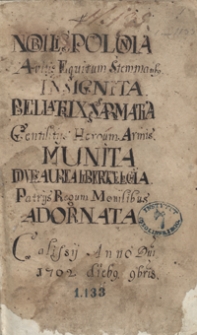 NOBILIS POLONIA
Avitis Equitum Stemmatib.
INSIGNITA
BELLATRIX SARMATIA
Gentilitijs Heroum Armis
MUNITA
AUREA LIBERTAS
Patrijs Regum Monilibus
ADORNATA
Calissij Anno Dni
1702 die 9bris
1.133